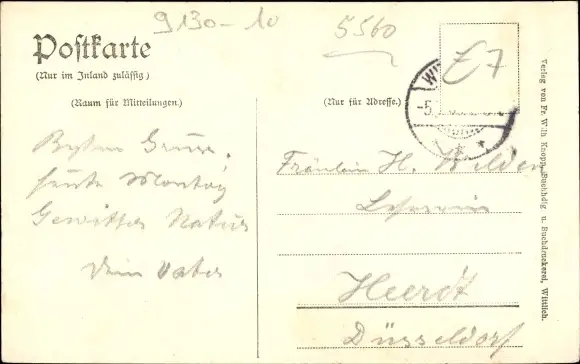 9130-10
5560
Postkarte
(Nur im Inland zulässig.)
(Raum für Mitteilungen.)
(Nur für Adresse.)
WIT
-5.
E7
Besten Gruss.
heute Montag
Gewitter Natur
Dein Vater
Fräulein H. Welden
Lehrerin
Heerdt
Düsseldorf
Verlag von Fr. Wilh. Knopp, Buchhdlg. u. Buchdruckerei, Wittlich.